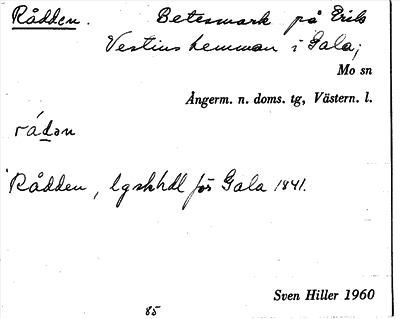 Rådden. Betesmark på Erik
Vestins hemman i Gala;
Mo sn
Ångerm. n. doms. tg, Västern. l.
rádən
Rådden, lgskhdl för Gala 1841.
Sven Hiller 1960
85